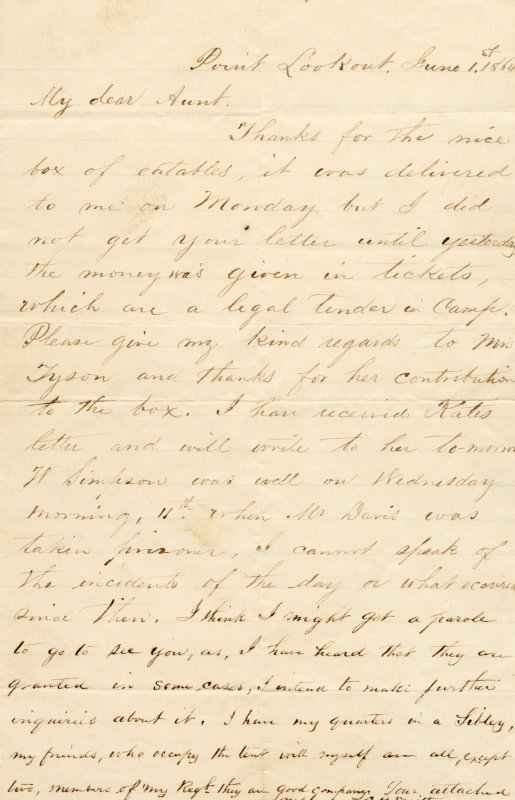 Point Lookout. June 1.st 1864
My dear Aunt.
Thanks for the nice
box of eatables, it was delivered
to me on Monday but I did
not get your letter until yesterday
the money was given in tickets,
which are a legal tender in Camp.
Please give my kind regards to Mrs
Tyson and thanks for her contribution
to the box. I have received Kates
letter and will write to her to-morrow
W Simpson was well on Wednesday
morning, 11th when Mr Davis was
taken prisoner, I cannot speak of
the incidents of the day or what occurred
since then. I think I might get a parole
to go to see you, as, I have heard that they are
granted in some cases, I intend to make further
inquiries about it. I have my quarters in a Sibley,
my friends, who occupy the tent with myself are all, except
two, members of my Regt they are good company. Your attached